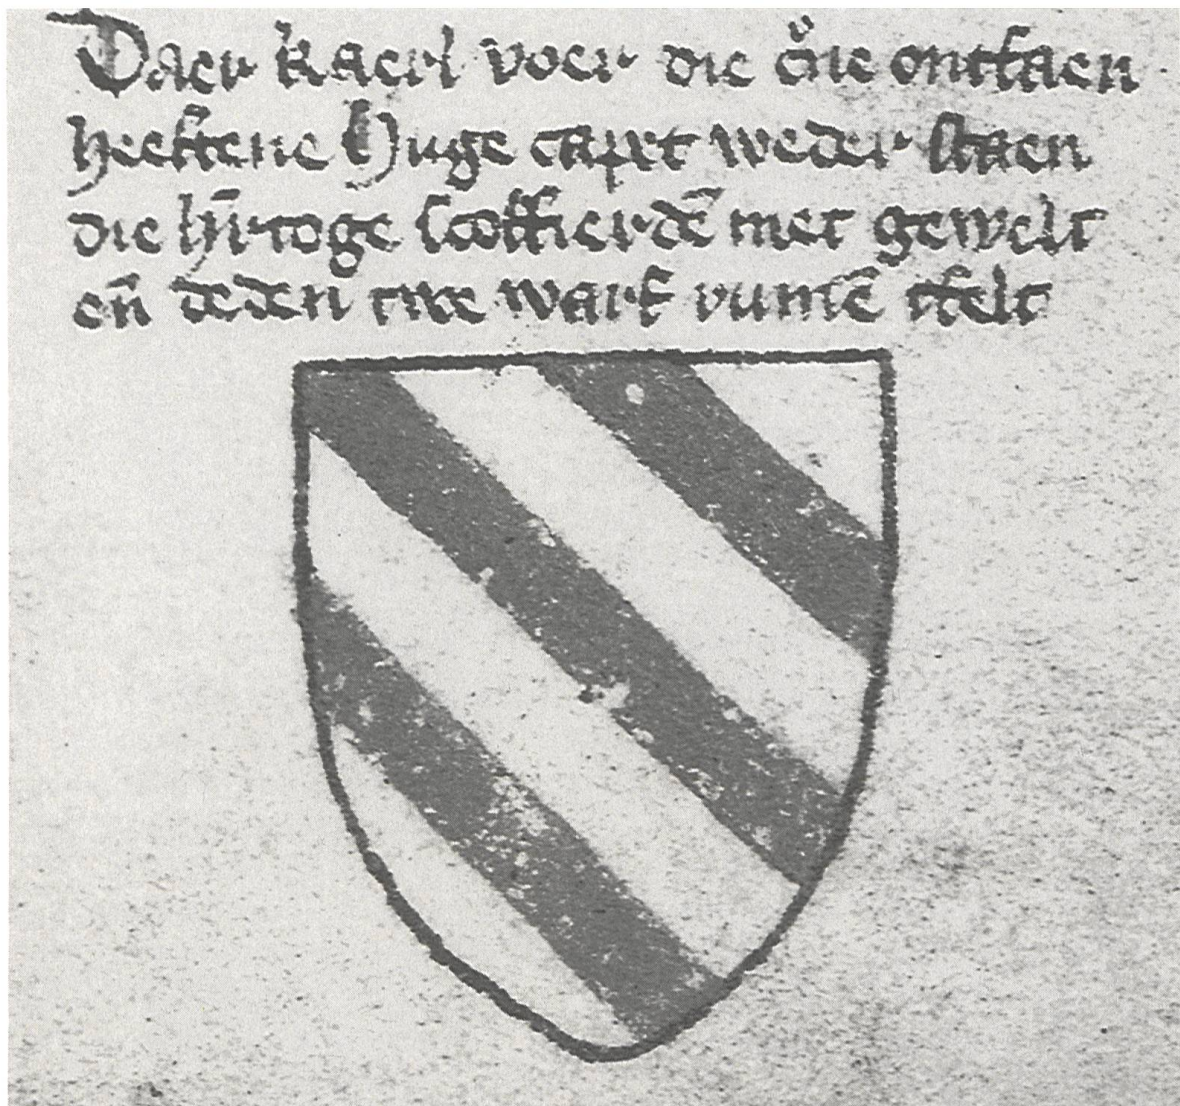 Daer kaerl voer die c̄ne ontfaen
heeftene Huge capet weder staen
die h̄rtoge scoffierdē met gewelt
eñ deden twe warf rumē tfelt